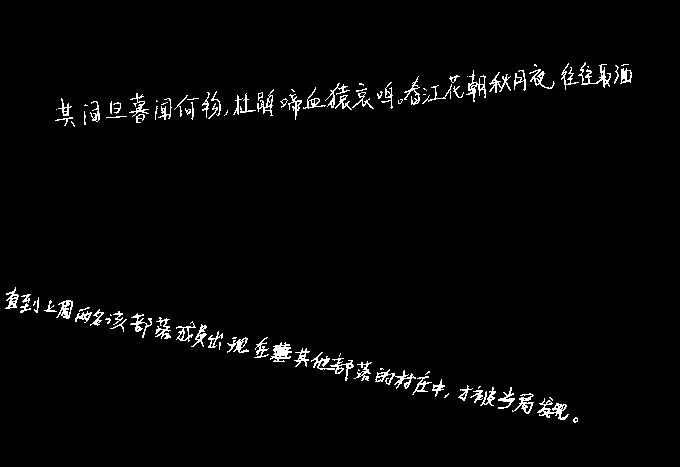 其间旦暮闻何物,杜鹃啼血猿哀鸣。春江花朝秋月夜,往往取酒
直到上周两名该部落成员出现在其他部落的村庄中,才被当局发现。